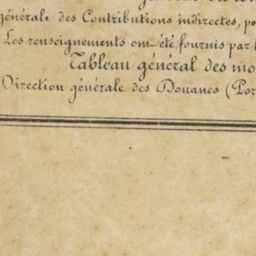 générale des Contributions indirectes, po
Les renseignements ont été fournis par l
Tableau général des mo
Direction générale des Douanes (Por